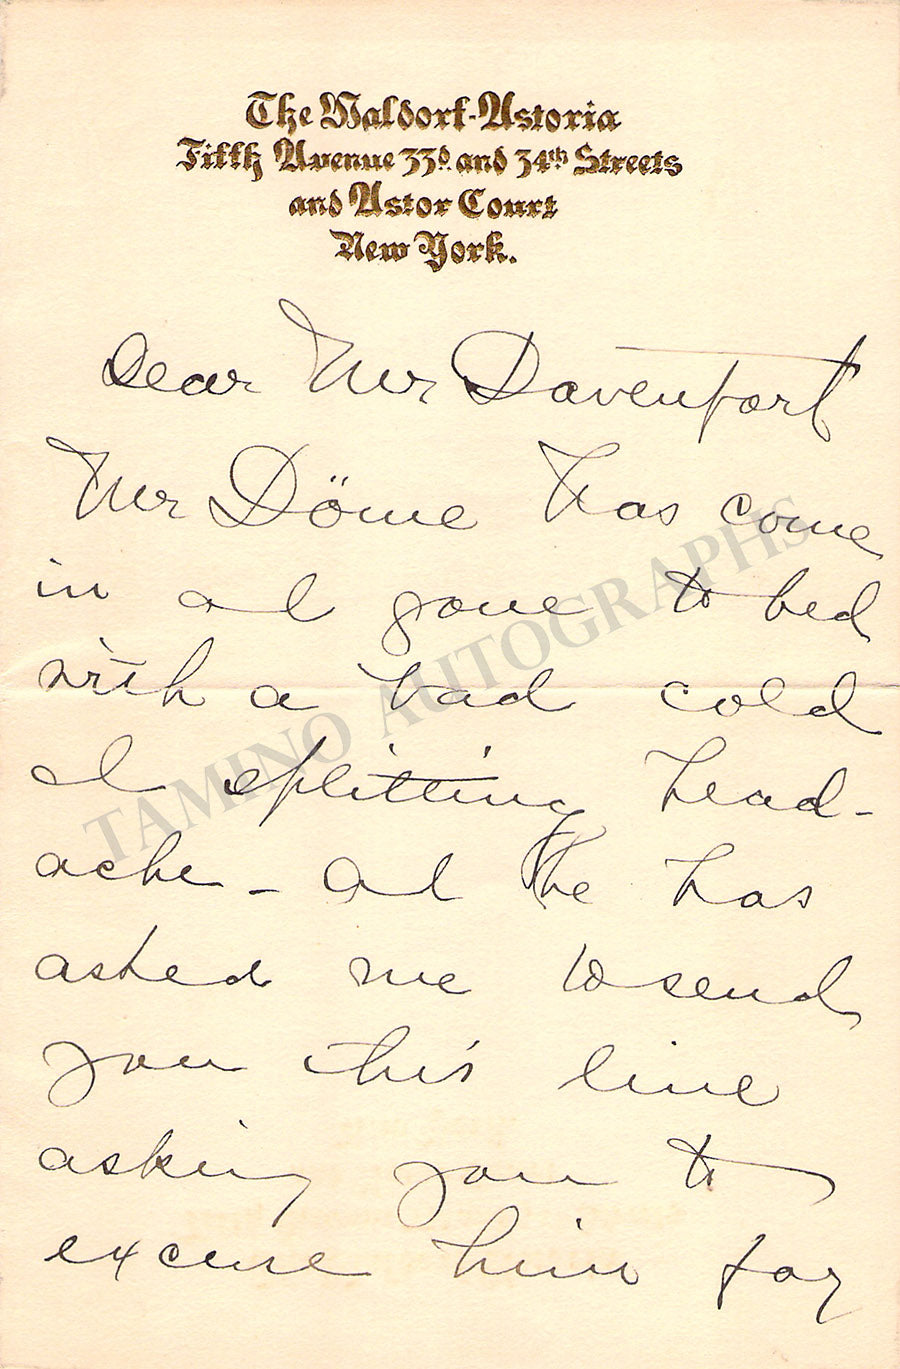 The Waldorf-Astoria
Fifth Avenue 33d. and 34th Streets
and Astor Court
New York.
Dear Mr Davenport
Mr Döme has come
in ad gone to bed
with a bad cold
ad splitting head-
ache - Ad he has
asked me to send
you this line
asking you to
excuse him for
TAMINO AUTOGRAPHS